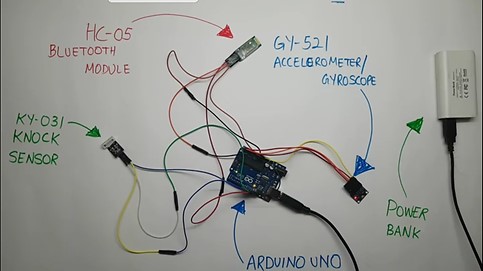 HC-05
BLUETOOTH
MODULE
GY-521
ACCELEROMETER/
GYROSCOPE
KY-031
KNOCK
SENSOR
POWER
BANK
ARDUINO UNO